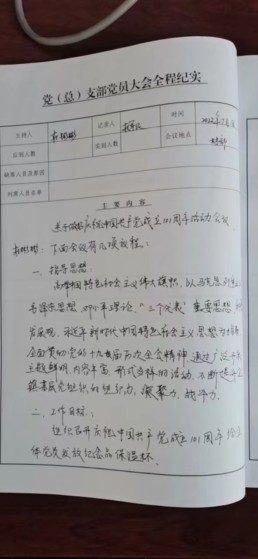 党（总）支部党员大会全程纪实
主持人 记录人 时间
应到人数 实到人数 会议地点
缺席人员及原因
列席人员名单
主要内容
关于 庆祝中国共产党成立101周年活动会议
下面会议有几项议程：
一、指导思想
高举中国特色社会主义伟大旗帜，以马克思列宁主义
毛泽东思想 邓小平理论、“三个代表”重要思想 科学
发展观、习近平新时代中国特色社会主义思想为指导
全面贯彻党的十九届历次全会精神，通过广泛开展
主题鲜明、内容丰富、形式多样的活动，不断提升全
镇基层党组织的组织力、凝聚力、战斗力。
二、工作目标：
组织召开庆祝中国共产党成立101周年 给全
体党员发放纪念品保温杯。